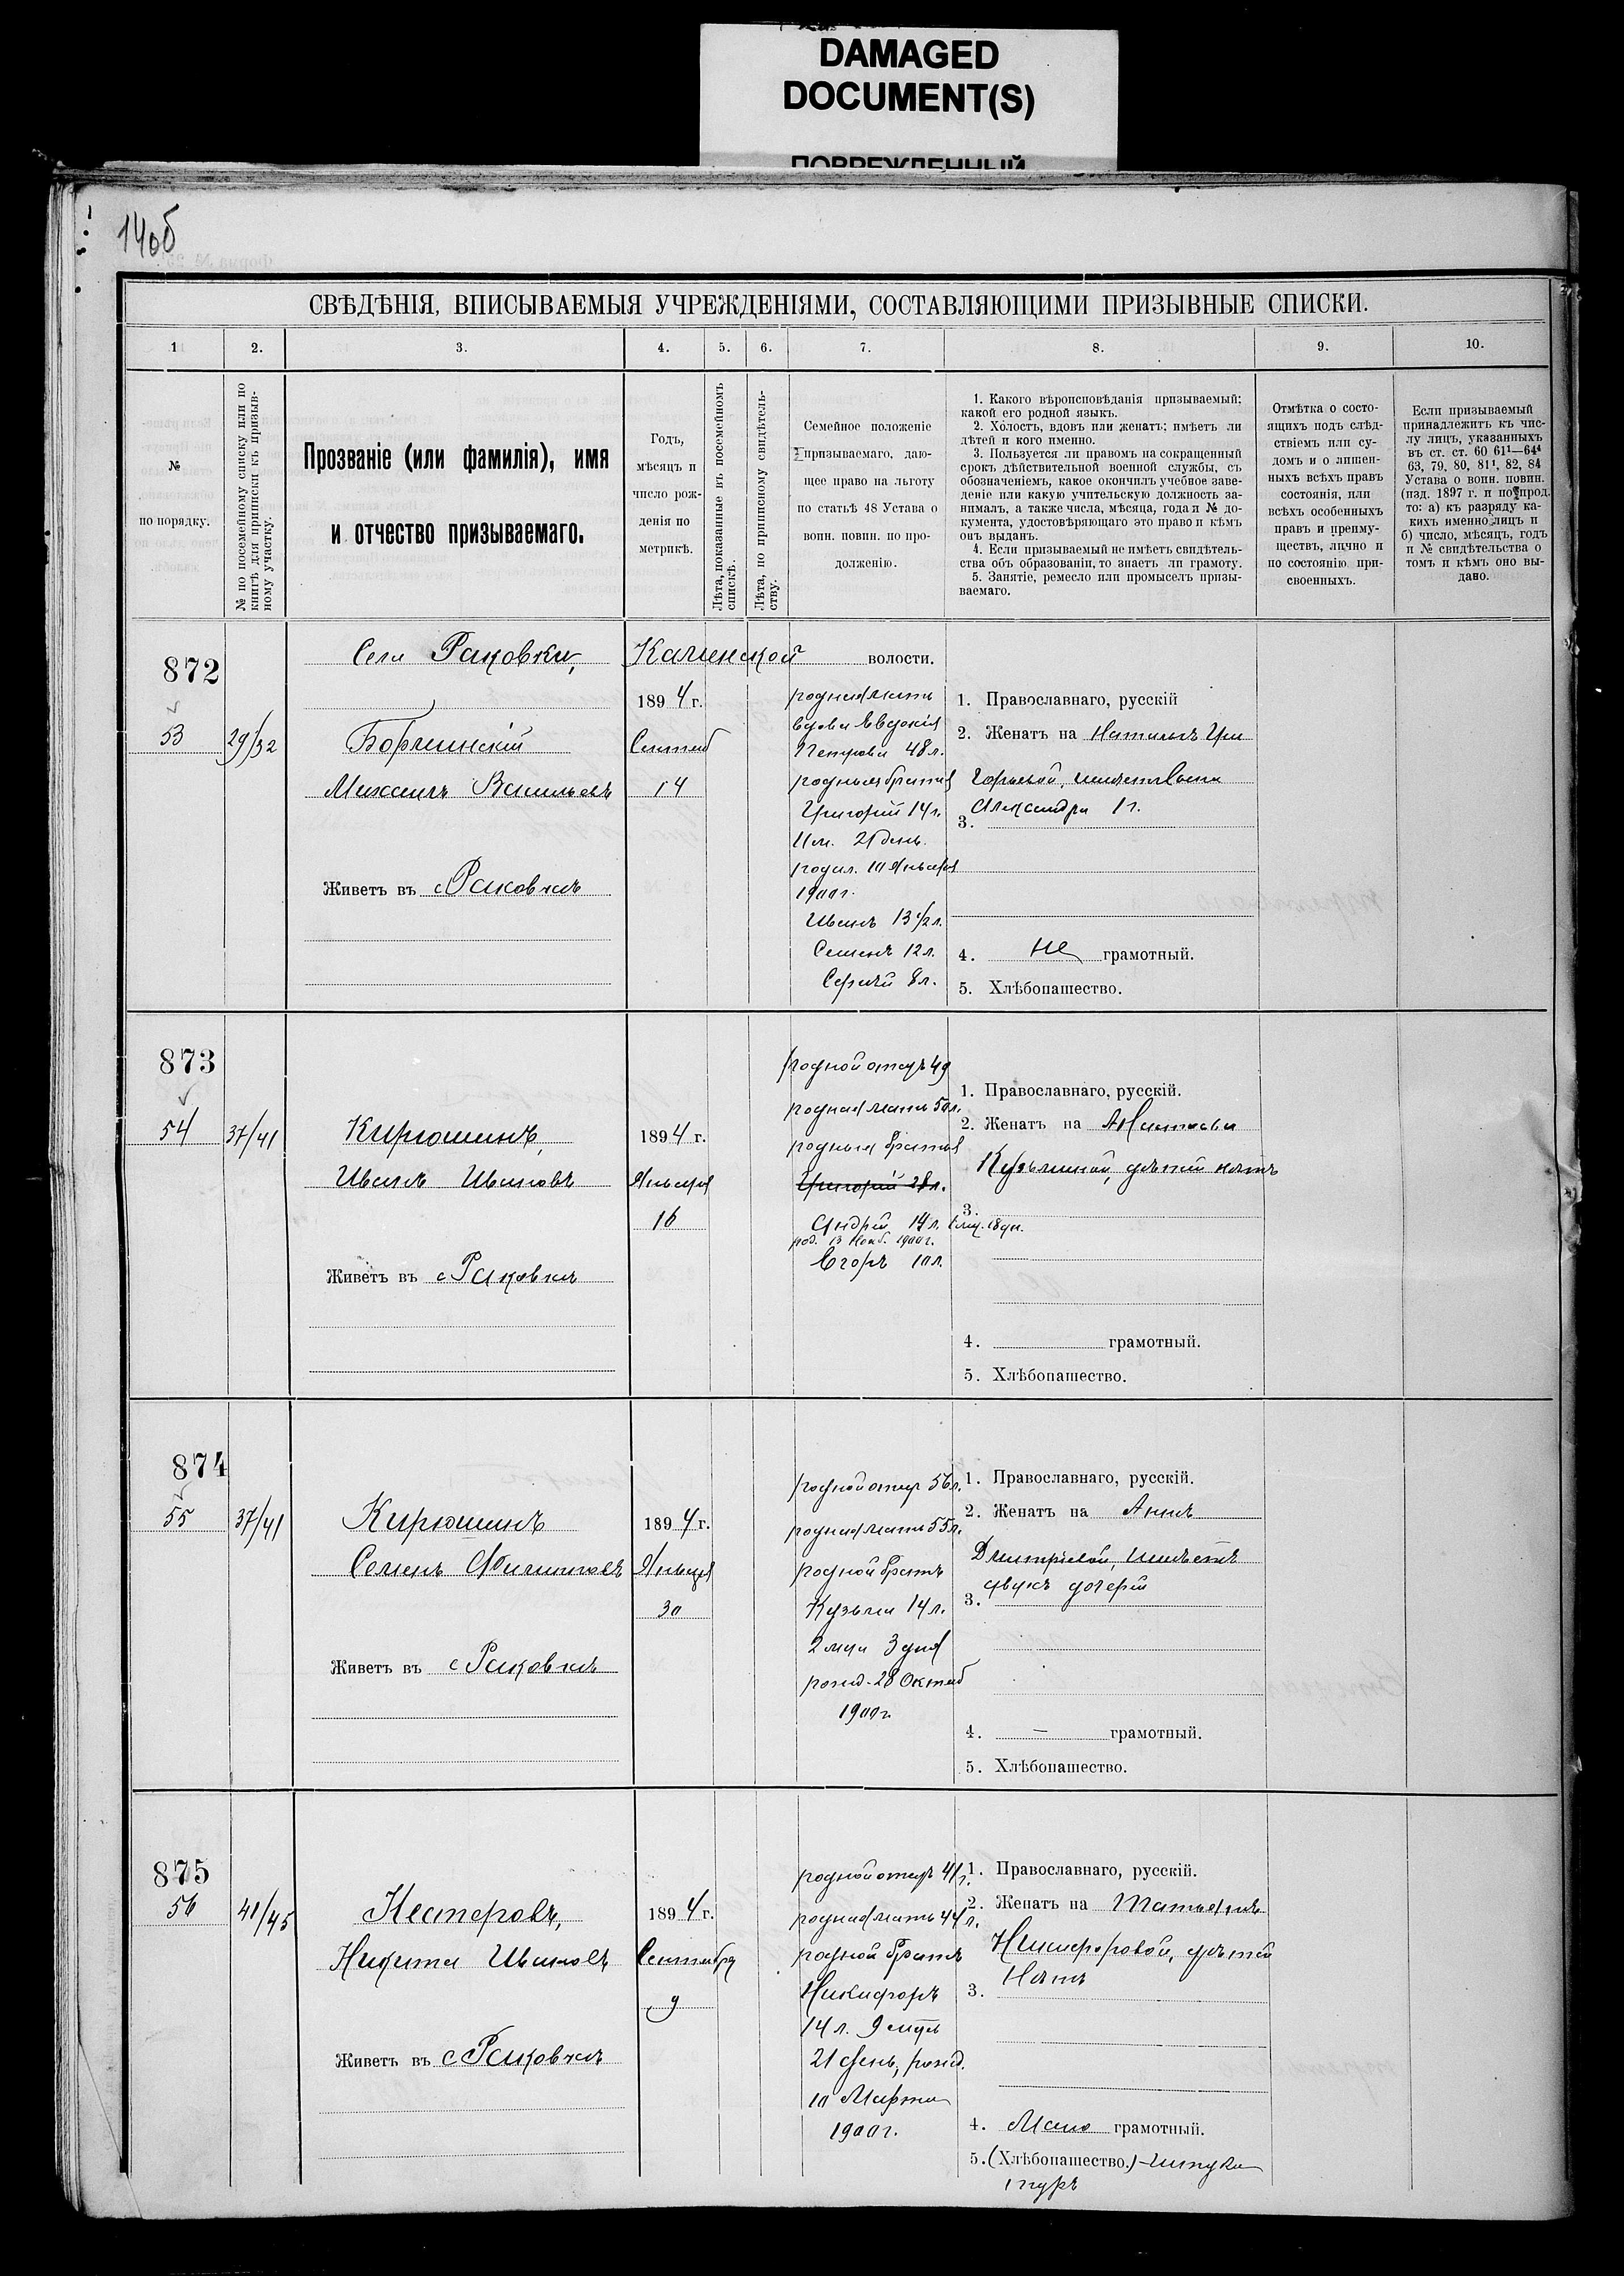 DAMAGED
DOCUMENT(S)
ПОВРЕЖДЕННЫЙ
14об
СВѢДѢНІЯ, ВПИСЫВАЕМЫЯ УЧРЕЖДЕНІЯМИ, СОСТАВЛЯЮЩИМИ ПРИЗЫВНЫЕ СПИСКИ.
1 2. 3. 4. 5. 6. 7. 8. 9. 10.
№
по порядку.
№ по посемейному списку или по
книгѣ для приписки къ призыв-
ному участку.
Прозваніе (или фамилія), имя
и отчество призываемаго.
Годъ,
мѣсяцъ и
число рож-
денія по
метрикѣ.
Лѣта, показанные въ посемейномъ
спискѣ.
Лѣта, по приписному свидѣтель-
ству.
Семейное положеніе
призываемаго, даю-
щее право на льготу
по статьѣ 48 Устава о
воин. повин. по про-
долженію.
1. Какого вѣроисповѣданія призываемый;
какой его родной языкъ.
2. Холостъ, вдовъ или женатъ; имѣетъ ли
дѣтей и кого именно.
3. Пользуется ли правомъ на сокращенный
срокъ дѣйствительной военной службы, съ
обозначеніемъ, какое окончилъ учебное заве-
деніе или какую учительскую должность за-
нималъ, а также числа, мѣсяца, года и № до-
кумента, удостовѣряющаго это право и кѣмъ
онъ выданъ.
4. Если призываемый не имѣетъ свидѣтель-
ства объ образованіи, то знаетъ ли грамоту.
5. Занятіе, ремесло или промыселъ призы-
ваемаго.
Отмѣтка о состо-
ящихъ подъ слѣд-
ствіемъ или су-
домъ и о лишен-
ныхъ всѣхъ правъ
состоянія, или
всѣхъ особенныхъ
правъ и преиму-
ществъ, лично и
по состоянію при-
своенныхъ.
Если призываемый
принадлежитъ къ чис-
лу лицъ, указанныхъ
въ ст. ст. 60 61¹—64⁴
63, 79, 80, 81¹, 82, 84
Устава о воин. повин.
(изд. 1897 г. и по прод.
то: а) къ разряду ка-
кихъ именно лицъ и
б) число, мѣсяцъ, годъ
и № свидѣтельства о
томъ и кѣмъ оно вы-
дано.
Села Раковки, волости.
872
53
29/32
Михаилъ Васильевъ
Живетъ въ с Раковкѣ
1894 г.
Сентяб
14
родная мать
вдова Евдокія
Петрова 48 л.
родныя братья
Григорій 14 л.
11 м. 21 день.
родил. 10 Января
1900 г.
Иванъ 13 1/2 л.
Семенъ 12 л.
Сергѣй 8 л.
1. Православнаго, русскій
2. Женатъ на Натальѣ Гри
горьевой, имѣетъ сына
Александра 1 г.
3.
4. Не грамотный.
5. Хлѣбопашество.
873
54
37/41
Кирюшинъ,
Иванъ Ивановъ
Живетъ въ с Раковкѣ
1894 г.
Января
16
родной отецъ 49
родная мать 50 л.
родныя братья
Григорій 28 л.
Андрей 14 л. 1 мц. 18 дн.
род. 13 Нояб. 1900 г.
Егоръ 10 л.
1. Православнаго, русскій.
2. Женатъ на
Кузьминой, дѣтей нѣтъ
3.
4. грамотный.
5. Хлѣбопашество.
874
55
37/41
Кирюшинъ
Семенъ Филипповъ
Живетъ въ с Раковкѣ
1894 г.
Января
30
родной отецъ 56 л.
родная мать 55 л.
родной братъ
Кузьма 14 л.
2 мца 3 дня
рожд. 28 Октяб
1900 г.
1. Православнаго, русскій.
2. Женатъ на Аннѣ
Дмитріевой, имѣетъ
двухъ дочерей
3.
4. — грамотный.
5. Хлѣбопашество.
875
56
41/45
Нестеровъ,
Никита Ивановъ
Живетъ въ с Раковкѣ
1894 г.
Сентября
9
родной отецъ 41 г.
родная мать 44 л.
родной братъ
Никифоръ
14 л. 9 мцъ
21 день, рожд.
10 Марта
1900 г.
1. Православнаго, русскій.
2. Женатъ на Татьянѣ
Никифоровой, дѣтей
Нѣтъ
3.
4. Мало грамотный.
5. (Хлѣбопашество.) - штука
туръ